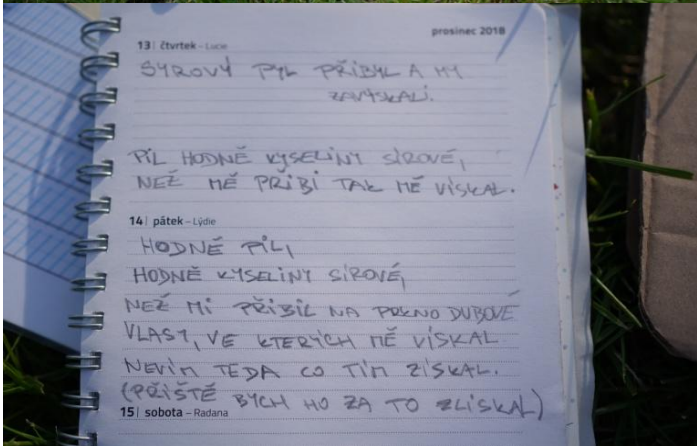 prosinec 2018
13 | čtvrtek – Lucie
SÝROVÝ PYL PŘIBYL A MY
ZAVÝSKALI.
PIL HODNĚ KYSELINY SÍROVÉ,
NEŽ MĚ PŘIBI TAK MĚ VÍSKAL.
14 | pátek – Lýdie
HODNĚ PIL,
HODNĚ KYSELINY SÍROVÉ,
NEŽ MI PŘIBIL NA PRKNO DUBOVÉ
VLASY, VE KTERÝCH MĚ VÍSKAL
NEVÍM TEDA CO TÍM ZÍSKAL.
(PŘÍŠTĚ BYCH HO ZA TO ZLÍSKAL)
15 | sobota – Radana